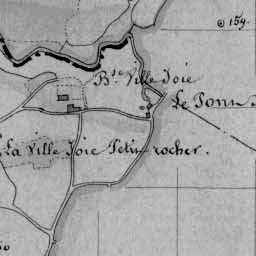 159.
Bte Ville Joie
Le Ponn
La Ville Joie Petit rocher.